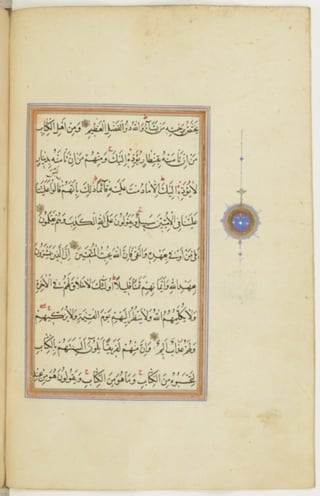 يَخْتَصُّ بِرَحْمَتِهِ مَنْ يَشَاءُ وَاللهُ ذُو الْفَضْلِ الْعَظِيمِ وَمِنْ اَهْلِ الْكِتَابِ
مَنْ اِنْ تَأْمَنْهُ بِقِنْطَارٍ يُؤَدِّهِ اِلَيْكَ وَمِنْهُمْ مَنْ اِنْ تَأْمَنْهُ بِدِينَارٍ
لَا يُؤَدِّهِ اِلَيْكَ اِلَّا مَا دُمْتَ عَلَيْهِ قَائِمًا ذٰلِكَ بِاَنَّهُمْ قَالُوا لَيْسَ
عَلَيْنَا فِي الْاُمِّيِّينَ سَبِيلٌ وَيَقُولُونَ عَلَى اللهِ الْكَذِبَ وَهُمْ يَعْلَمُونَ
بَلٰى مَنْ اَوْفٰى بِعَهْدِهِ وَاتَّقٰى فَاِنَّ اللهَ يُحِبُّ الْمُتَّقِينَ اِنَّ الَّذِينَ يَشْتَرُونَ
بِعَهْدِ اللهِ وَاَيْمَانِهِمْ ثَمَنًا قَلِيلًا اُولٰئِكَ لَا خَلَاقَ لَهُمْ فِي الْاٰخِرَةِ
وَلَا يُكَلِّمُهُمُ اللهُ وَلَا يَنْظُرُ اِلَيْهِمْ يَوْمَ الْقِيٰمَةِ وَلَا يُزَكِّيهِمْ
وَلَهُمْ عَذَابٌ اَلِيمٌ وَاِنَّ مِنْهُمْ لَفَرِيقًا يَلْوُنَ اَلْسِنَتَهُمْ بِالْكِتَابِ
لِتَحْسَبُوهُ مِنَ الْكِتَابِ وَمَا هُوَ مِنَ الْكِتَابِ وَيَقُولُونَ هُوَ مِنْ عِنْدِ